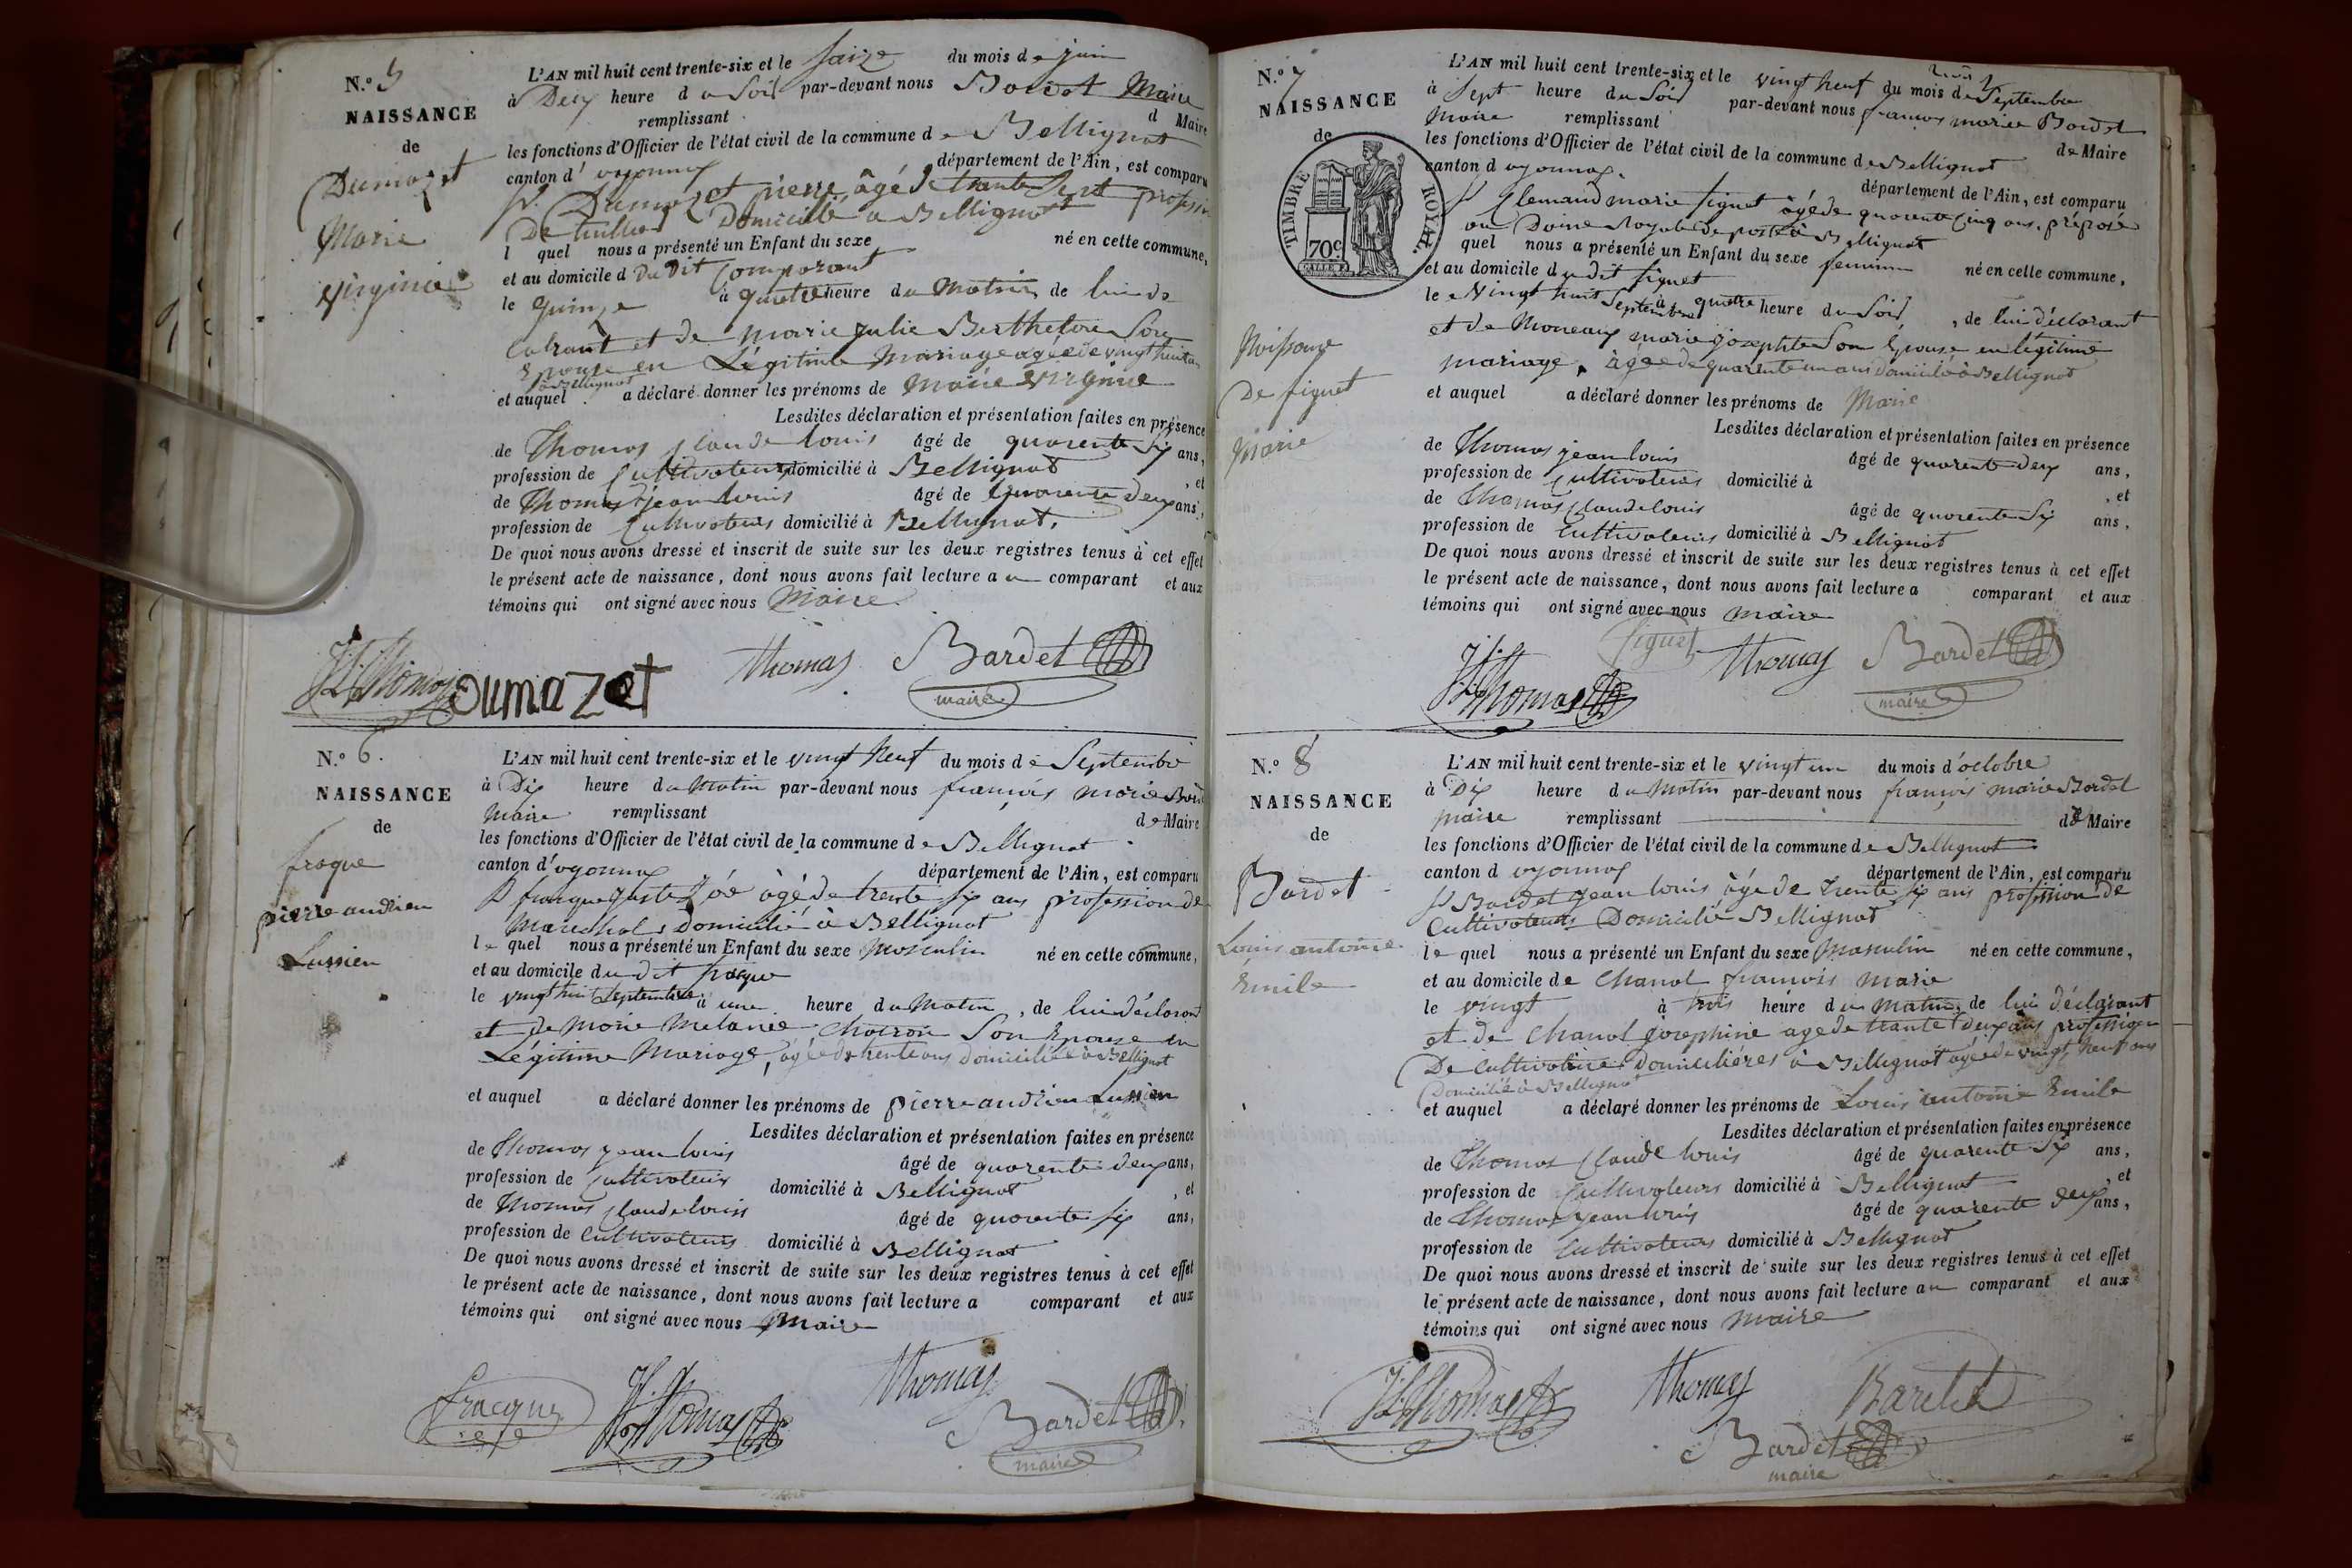 N.o 5
NAISSANCE
de
Dumazet
Marie
Virginie
L'AN mil huit cent trente-six et le saize du mois de juin
à Deux heure du Soir par-devant nous Bardet Maire
remplissant d Maire
les fonctions d'Officier de l'état civil de la commune de Bellignat
canton d'oyonnax département de l'Ain, est comparu
Sr. Dumazet pierre âgé de trente Sept profession
De tuillier Domicillié a Bellignat
l quel nous a présenté un Enfant du sexe né en cette commune,
et au domicile d Du Dit Comparant
le Quinze à quatre heure du Matin de lui dé
Calrant et de marie julie Berthelon Son
Epouse en Légitime Mariage agée de vingt huit ans
à Bellignat
et auquel a déclaré donner les prénoms de Marie Virginie
Lesdites déclaration et présentation faites en présence
de Thomas Claude louis âgé de quarente Six ans,
profession de Cultivateur domicilié à Bellignat, et
de Thomas jean louis âgé de Quarente Deux ans,
profession de Cultivateur domicilié à Bellignat.
De quoi nous avons dressé et inscrit de suite sur les deux registres tenus à cet effet
le présent acte de naissance, dont nous avons fait lecture au comparant et aux
témoins qui ont signé avec nous Maire
JL Thomas Dumazet Thomas Bardet
maire
N.o 6.
NAISSANCE
de
fraque
pierre andrien
Lussien
L'AN mil huit cent trente-six et le vingt Neuf du mois de Septembre
à Dix heure du Matin par-devant nous françois marie Bard
Maire remplissant de Maire
les fonctions d'Officier de l'état civil de la commune de Bellignat
canton d'oyonnax département de l'Ain, est comparu
S fraque juste âgé de trente Six ans profession de
Marechal Domicilié à Bellignat
le quel nous a présenté un Enfant du sexe Masculin né en cette commune,
et au domicile du dit fraque
le vingt huit Septembre à une heure du Matin, de lui déclarant
et de Marie Melanie Chatron Son Epouse en
Légitime Mariage, âgée de trente ans domiciliée à Bellignat
et auquel a déclaré donner les prénoms de pierre andrien Lussien
Lesdites déclaration et présentation faites en présence
de Thomas jean louis âgé de quarente deux ans,
profession de Cultivateur domicilié à Bellignat, et
de Thomas Claude louis âgé de quarente Six ans,
profession de Cultivateur domicilié à Bellignat
De quoi nous avons dressé et inscrit de suite sur les deux registres tenus à cet effet
le présent acte de naissance, dont nous avons fait lecture a comparant et aux
témoins qui ont signé avec nous Maire
fracque JL Thomas Thomas Bardet
maire
N.o 7
NAISSANCE
de
TIMBRE ROYAL.
70c.
Naissance
De figuet
Marie
L'AN mil huit cent trente-six et le vingt neuf du mois de Septembre
à Sept heure du Soir par-devant nous françois marie Bardet
Maire remplissant de Maire
les fonctions d'Officier de l'état civil de la commune de Bellignat
canton d oyonnax. département de l'Ain, est comparu
S Clemand marie figuet âgé de quarente Cinq ans, préposé
au Doine Royale de poste à Bellignat
quel nous a présenté un Enfant du sexe feminin né en cette commune,
et au domicile du dit figuet
le Vingt huit Septembre à quatre heure du Soir, de lui déclarant
et de Moneaux marie josephte Son Epouse en légitime
mariage, âgée de quarente un ans domicilé à Bellignat
et auquel a déclaré donner les prénoms de Marie
Lesdites déclaration et présentation faites en présence
de Thomas jean louis âgé de quarente deux ans,
profession de Cultivateur domicilié à, et
de Thomas Claude louis âgé de quarente Six ans,
profession de Cultivateur domicilié à Bellignat
De quoi nous avons dressé et inscrit de suite sur les deux registres tenus à cet effet
le présent acte de naissance, dont nous avons fait lecture a comparant et aux
témoins qui ont signé avec nous maire
JL Thomas figuet Thomas Bardet
maire
N.o 8
NAISSANCE
de
Bardet
Louis antoine
Emile
L'AN mil huit cent trente-six et le vingt un du mois d'octobre
à Dix heure du Matin par-devant nous françois marie Bardet
maire remplissant de Maire
les fonctions d'Officier de l'état civil de la commune de Bellignat
canton d oyonnax département de l'Ain, est comparu
S Bardet jean louis âgé de trente Six ans profession de
Cultivateur Domicilié Bellignat
le quel nous a présenté un Enfant du sexe Masculin né en cette commune,
et au domicile de Chanal françois marie
le vingt à trois heure du matin, de lui déclarant
et de Chanal josephine agé de trante deux ans profession
De Cultivatrice Domiciliéres à Bellignat agée de vingt Neuf ans
Domicilié à Bellignat
et auquel a déclaré donner les prénoms de Louis antoine Emile
Lesdites déclaration et présentation faites en présence
de Thomas Claude louis âgé de quarente Six ans,
profession de Cultivateur domicilié à Bellignat, et
de Thomas jean louis âgé de quarente deux ans,
profession de Cultivateur domicilié à Bellignat
De quoi nous avons dressé et inscrit de suite sur les deux registres tenus à cet effet
le présent acte de naissance, dont nous avons fait lecture au comparant et aux
témoins qui ont signé avec nous Maire
JL Thomas Thomas Bardet
Bardet
maire